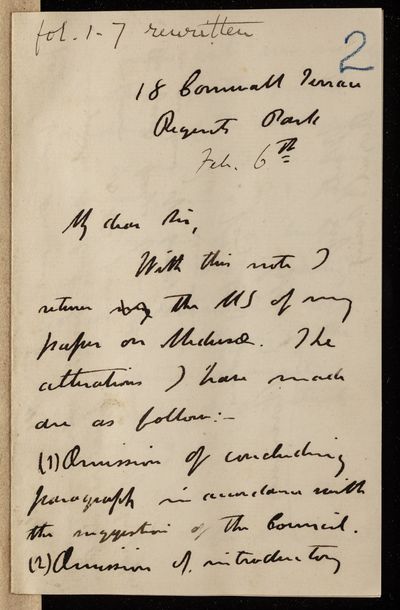 fol. 1-7 rewritten
2
18 Cornwall Terrace
Regents Park
Feb. 6th
My dear Sir,
With this note I
return the MS of my
paper on Medusæ. The
alterations I have made
are as follow:-
(1) Omission of concluding
paragraph in accordance with
the suggestion of the Council.
(2) Omission of introductory